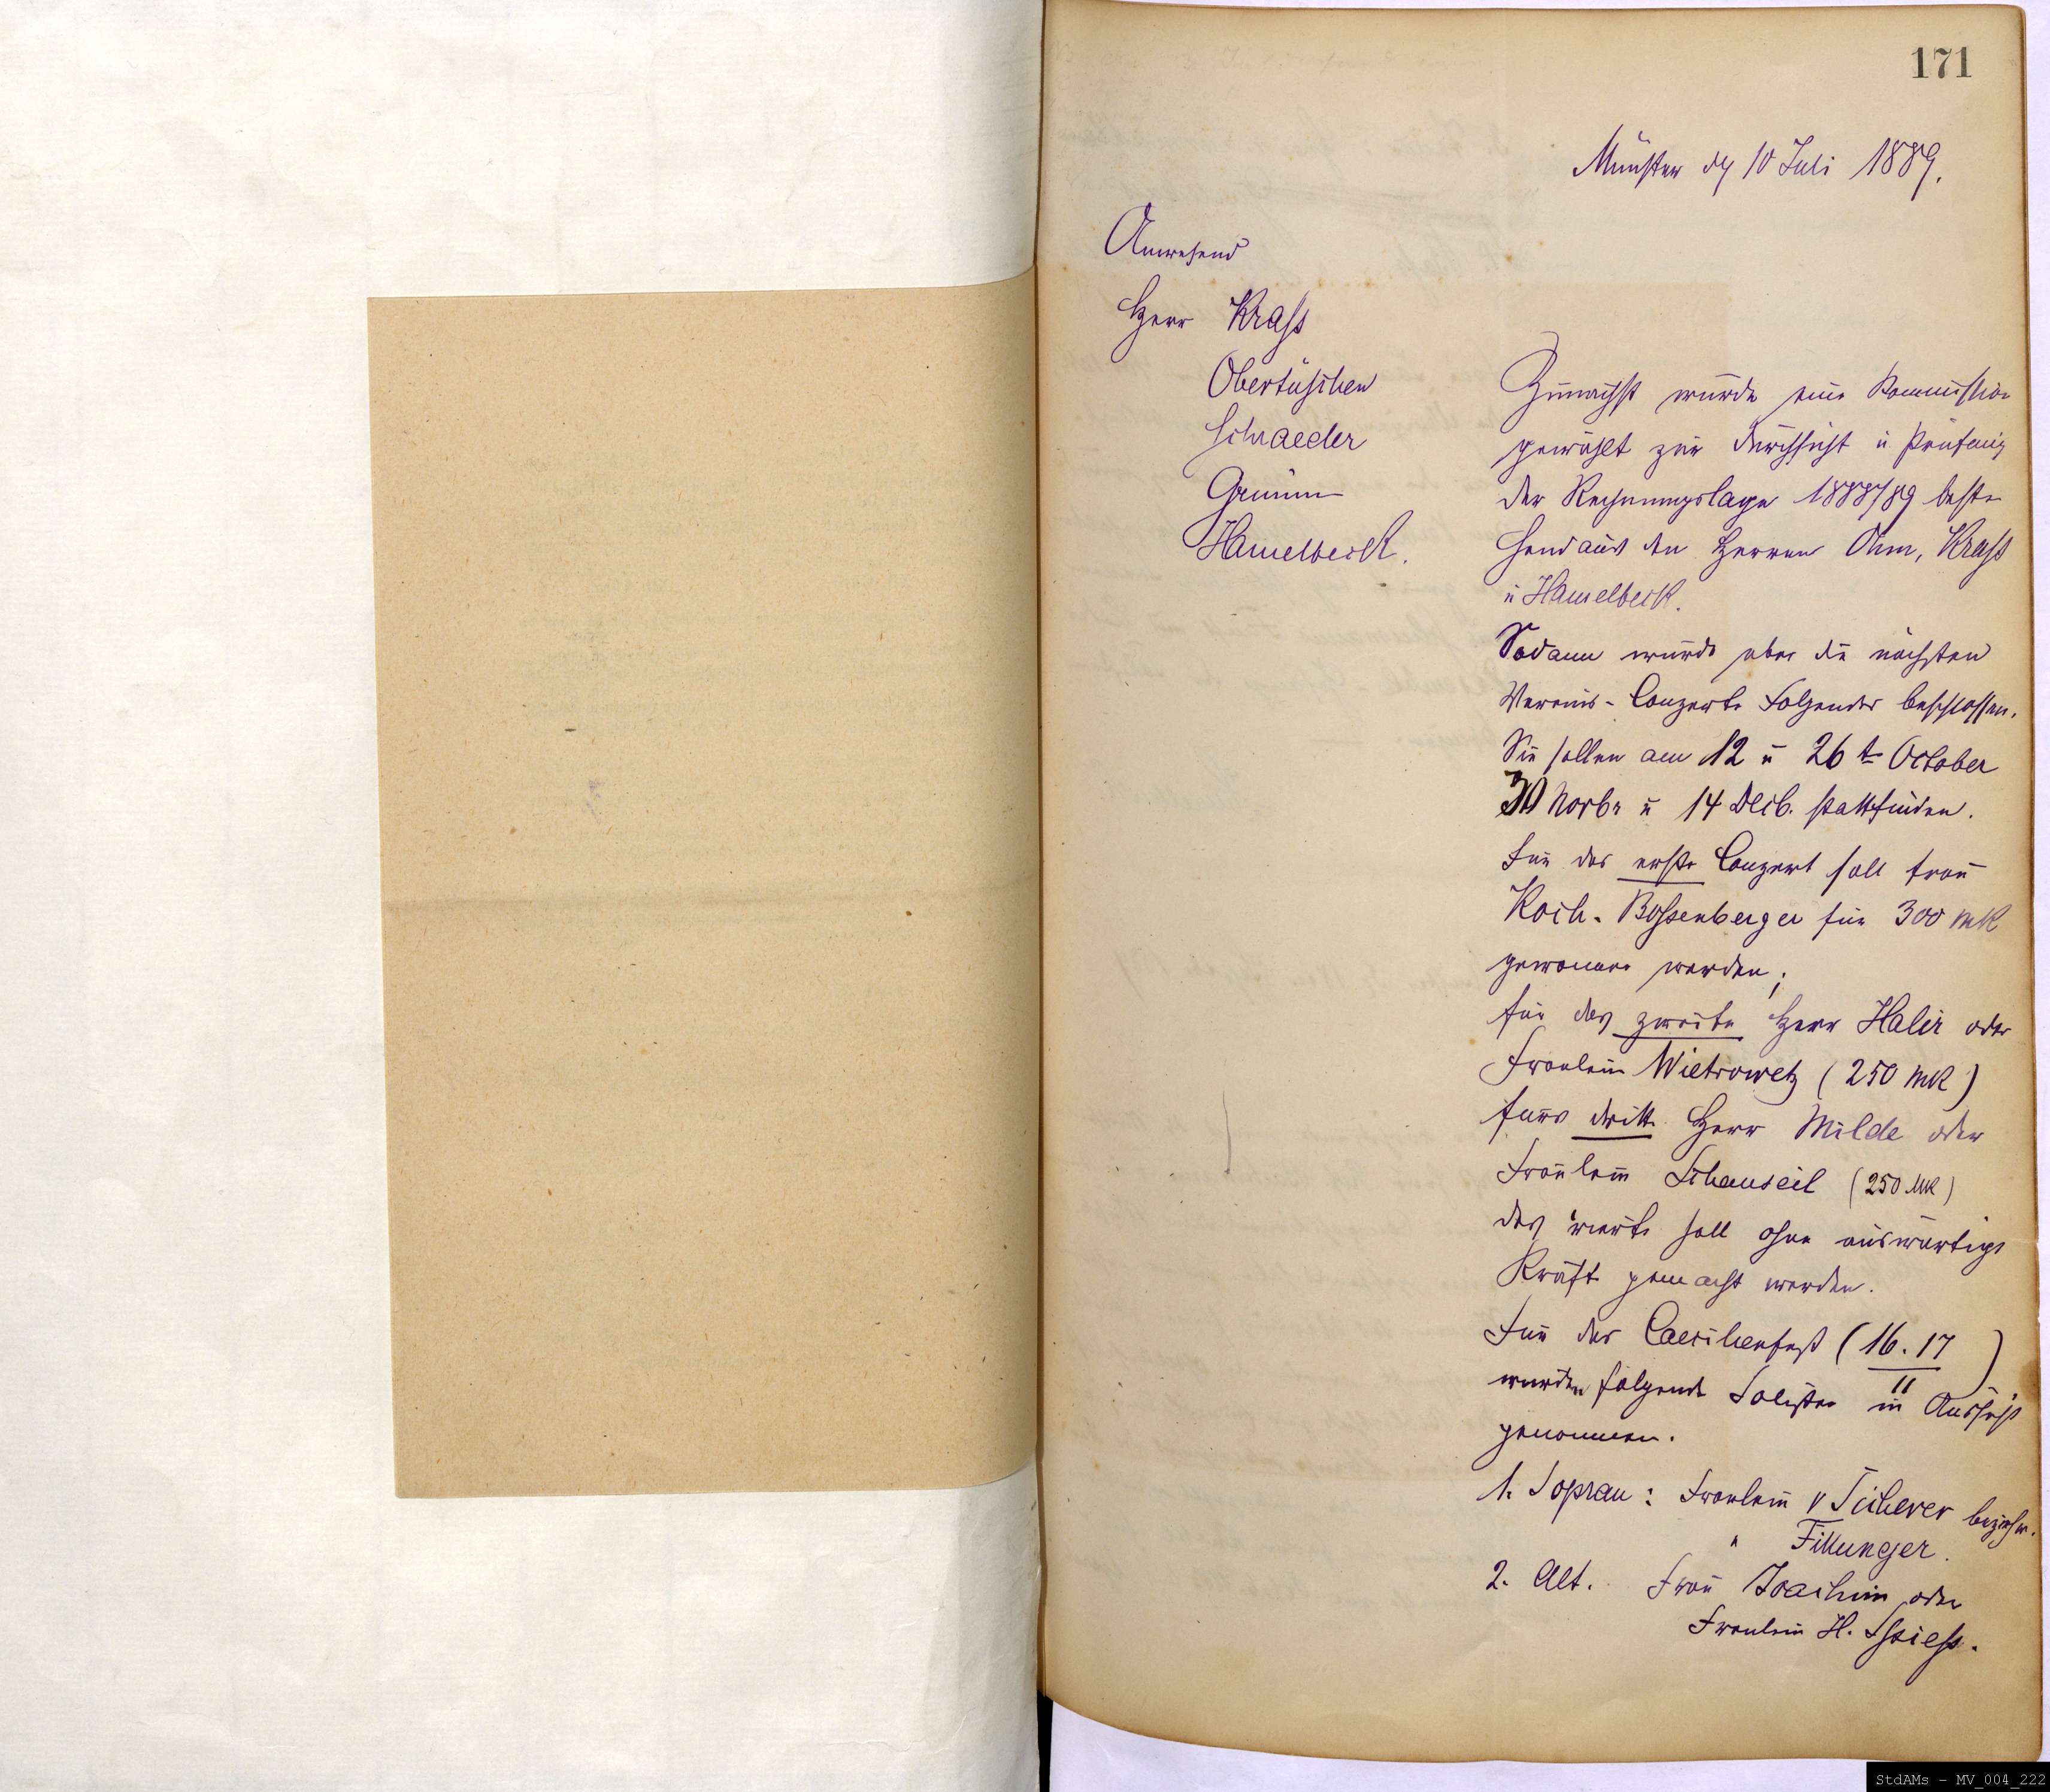 171
Münster d 10 Juli 1889.
Anwesend
Herr Krass
Obertüschen
Schraeder
Grimm
Hamelbeck.
Zunächst wurde eine Kommission
gewählt zur Durchsicht u Prüfung
der Rechnungslage 1888/89 beste
hend aus den Herren Ohm, Krass
u Hamelbeck.
Sodann wurde über die nächsten
Vereins-Conzerte Folgendes beschlossen.
Sie sollen am 12 u 26t October
30 Novbr u 14 Decb. stattfinden.
Für das erste Conzert soll Frau
Koch-Bossenberger für 300 MK
gewonnen werden;
für das zweite Herr Halir oder
Fraulein Wietrowetz (250 MK)
fürs dritte Herr Milde oder
Fräulein Schauseil (250 MK)
das vierte soll ohne auswärtige
Kräfte gemacht werden.
Für das Caecilienfest (16.17
11)
wurden folgende Solisten in Aussicht
genommen.
1. Sopran: Fraulein v Sicherer beziehw.
" Fillunger.
2. Alt. Frau Joachim oder
Fraulein H. Spiess.
StdAMs - MV_004_222